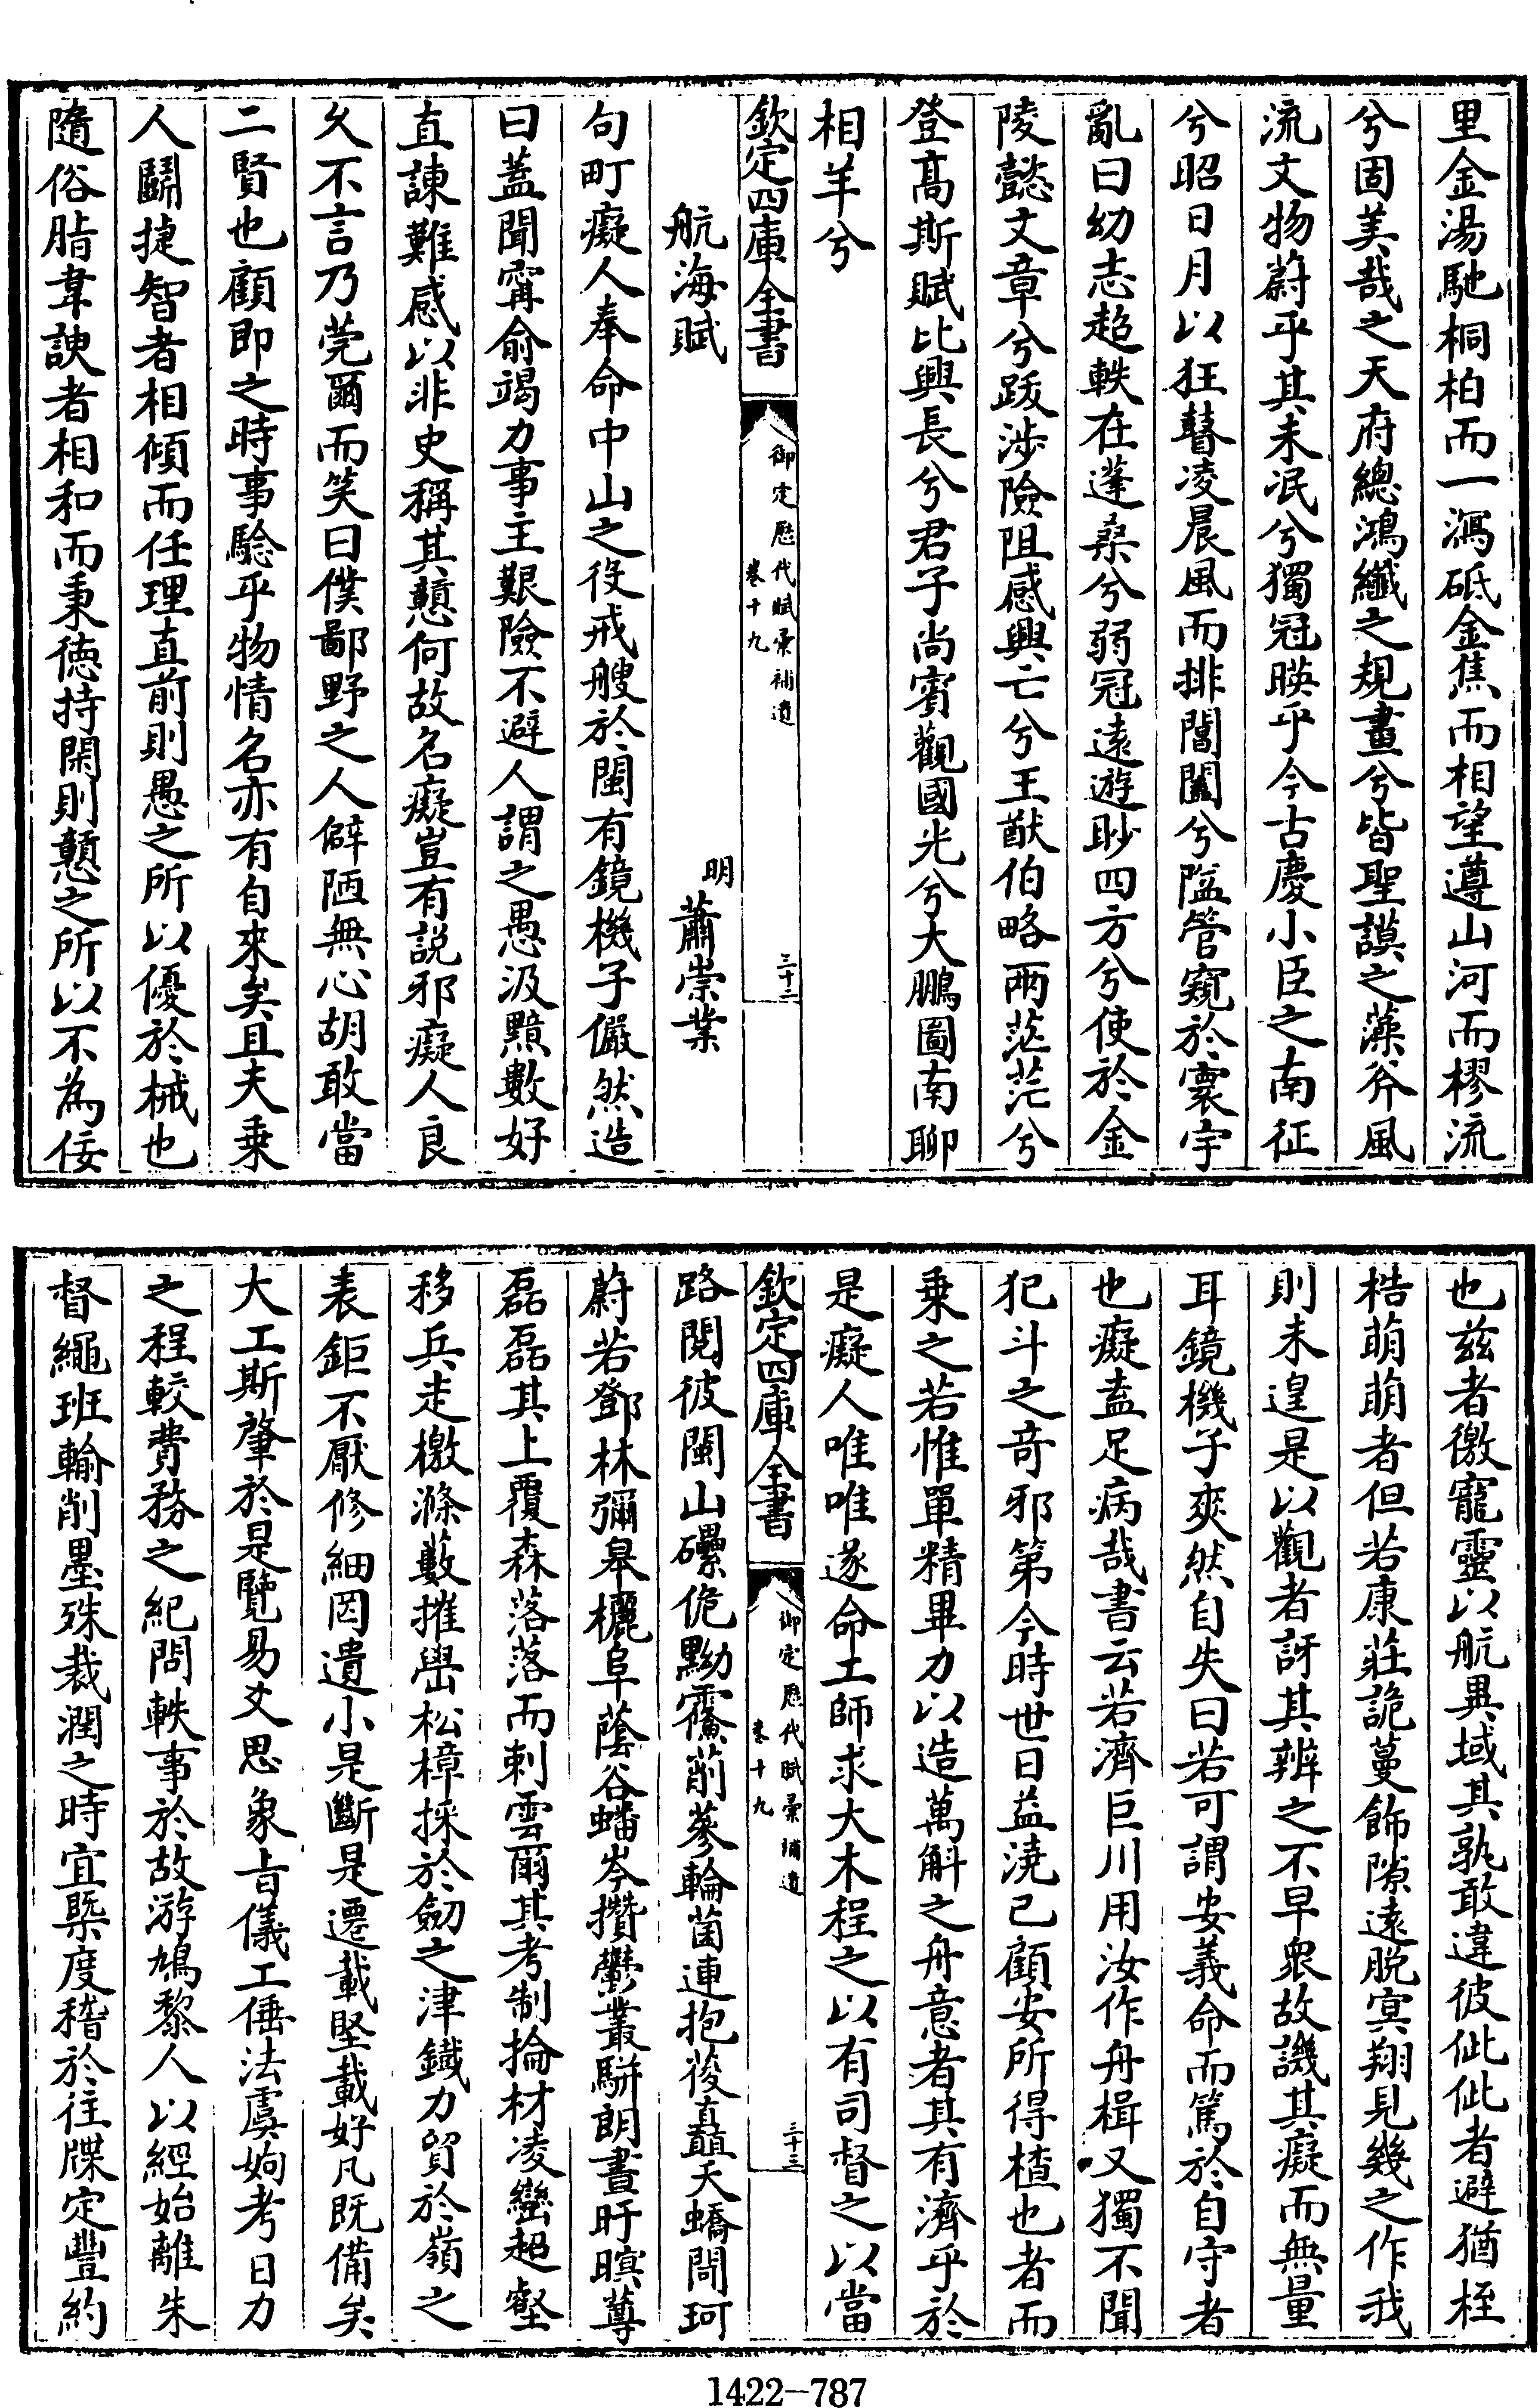 里金湯馳桐柏而一瀉砥金焦而相望遵山河而樛流
兮固美哉之天府總鴻纖之規畫兮皆聖謨之藻斧風
流文物蔚乎其未泯兮獨冠暎乎今古慶小臣之南征
兮昭日月以狂瞽凌晨風而排閶闔兮隘管窺於寰宇
亂曰幼志超軼在蓬桑兮弱冠遠遊眇四方兮使於金
陵懿文章兮跋涉險阻感興亡兮王猷伯略兩茫茫兮
登髙斯賦比興長兮君子尚賓觀國光兮大鵬圖南聊
相羊兮
欽定四庫全書
御定歷代賦彙補遺
卷十九
三十二
航海賦
明
蕭崇業
句町癡人奉命中山之役戒艘於閩有鏡機子儼然造
曰蓋聞甯俞竭力事主艱險不避人謂之愚汲黯數好
直諫難感以非史稱其戇何故名癡豈有説邪癡人良
乆不言乃莞爾而笑曰僕鄙野之人僻陋無心胡敢當
二賢也顧即之時事驗乎物情名亦有自來矣且夫乗
人鬭捷智者相傾而任理直前則愚之所以優於械也
隨俗脂韋諛者相和而秉徳持閑則戇之所以不為佞
也兹者徼寵靈以航異域其孰敢違彼佌佌者避猶桎
梏萌萌者但若康莊詭蔓飾隙遠脱冥翔見幾之作我
則未遑是以觀者訝其辨之不早衆故譏其癡而無量
耳鏡機子爽然自失曰若可謂安義命而篤於自守者
也癡盍足病哉書云若濟巨川用汝作舟楫又獨不聞
犯斗之竒邪第今時世日益澆已顧安所得楂也者而
乗之若惟單精畢力以造萬斛之舟意者其有濟乎於
是癡人唯唯遂命工師求大木程之以有司督之以當
欽定四庫全書
御定歷代賦彙補遺
卷十九
三十三
路閲彼閩山礧佹黝霿萷蔘輪菌連抱葰矗夭蟜閜珂
蔚若鄧林彌皋欐阜蔭谷蟠岑攢欝叢駢朗晝旰暝蓴
磊磊其上覆森落落而刺雲爾其考制掄材凌巒超壑
移兵走檄滌藪摧嶨松樟採於劒之津鐵力貿於嶺之
表鉅不厭修細罔遺小是斷是遷載堅載好凡旣備矣
大工斯肇於是覽易爻思象㫖儀工倕法虞姁考日力
之程較費務之紀問軼事於故游鳩黎人以經始離朱
督繩班輸削墨殊裁潤之時宜槩度稽於往牒定豐約
1422-787